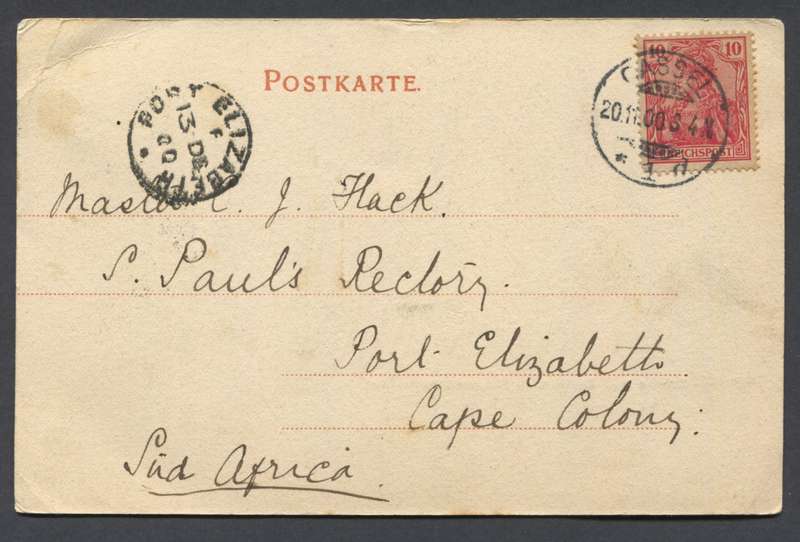 POSTKARTE.
10 10
REICHSPOST
CASSEL
20.11.00.
PORT ELIZABETH
F
13
DE
00
Master J. Hack.
S. Paul's Rectory.
Port Elizabeth.
Cape Colony.
Süd Africa.